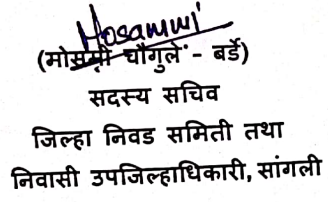 Mosammi
(मोसमी चौगुले - बर्डे)
सदस्य सचिव
जिल्हा निवड समिती तथा
निवासी उपजिल्हाधिकारी, सांगली